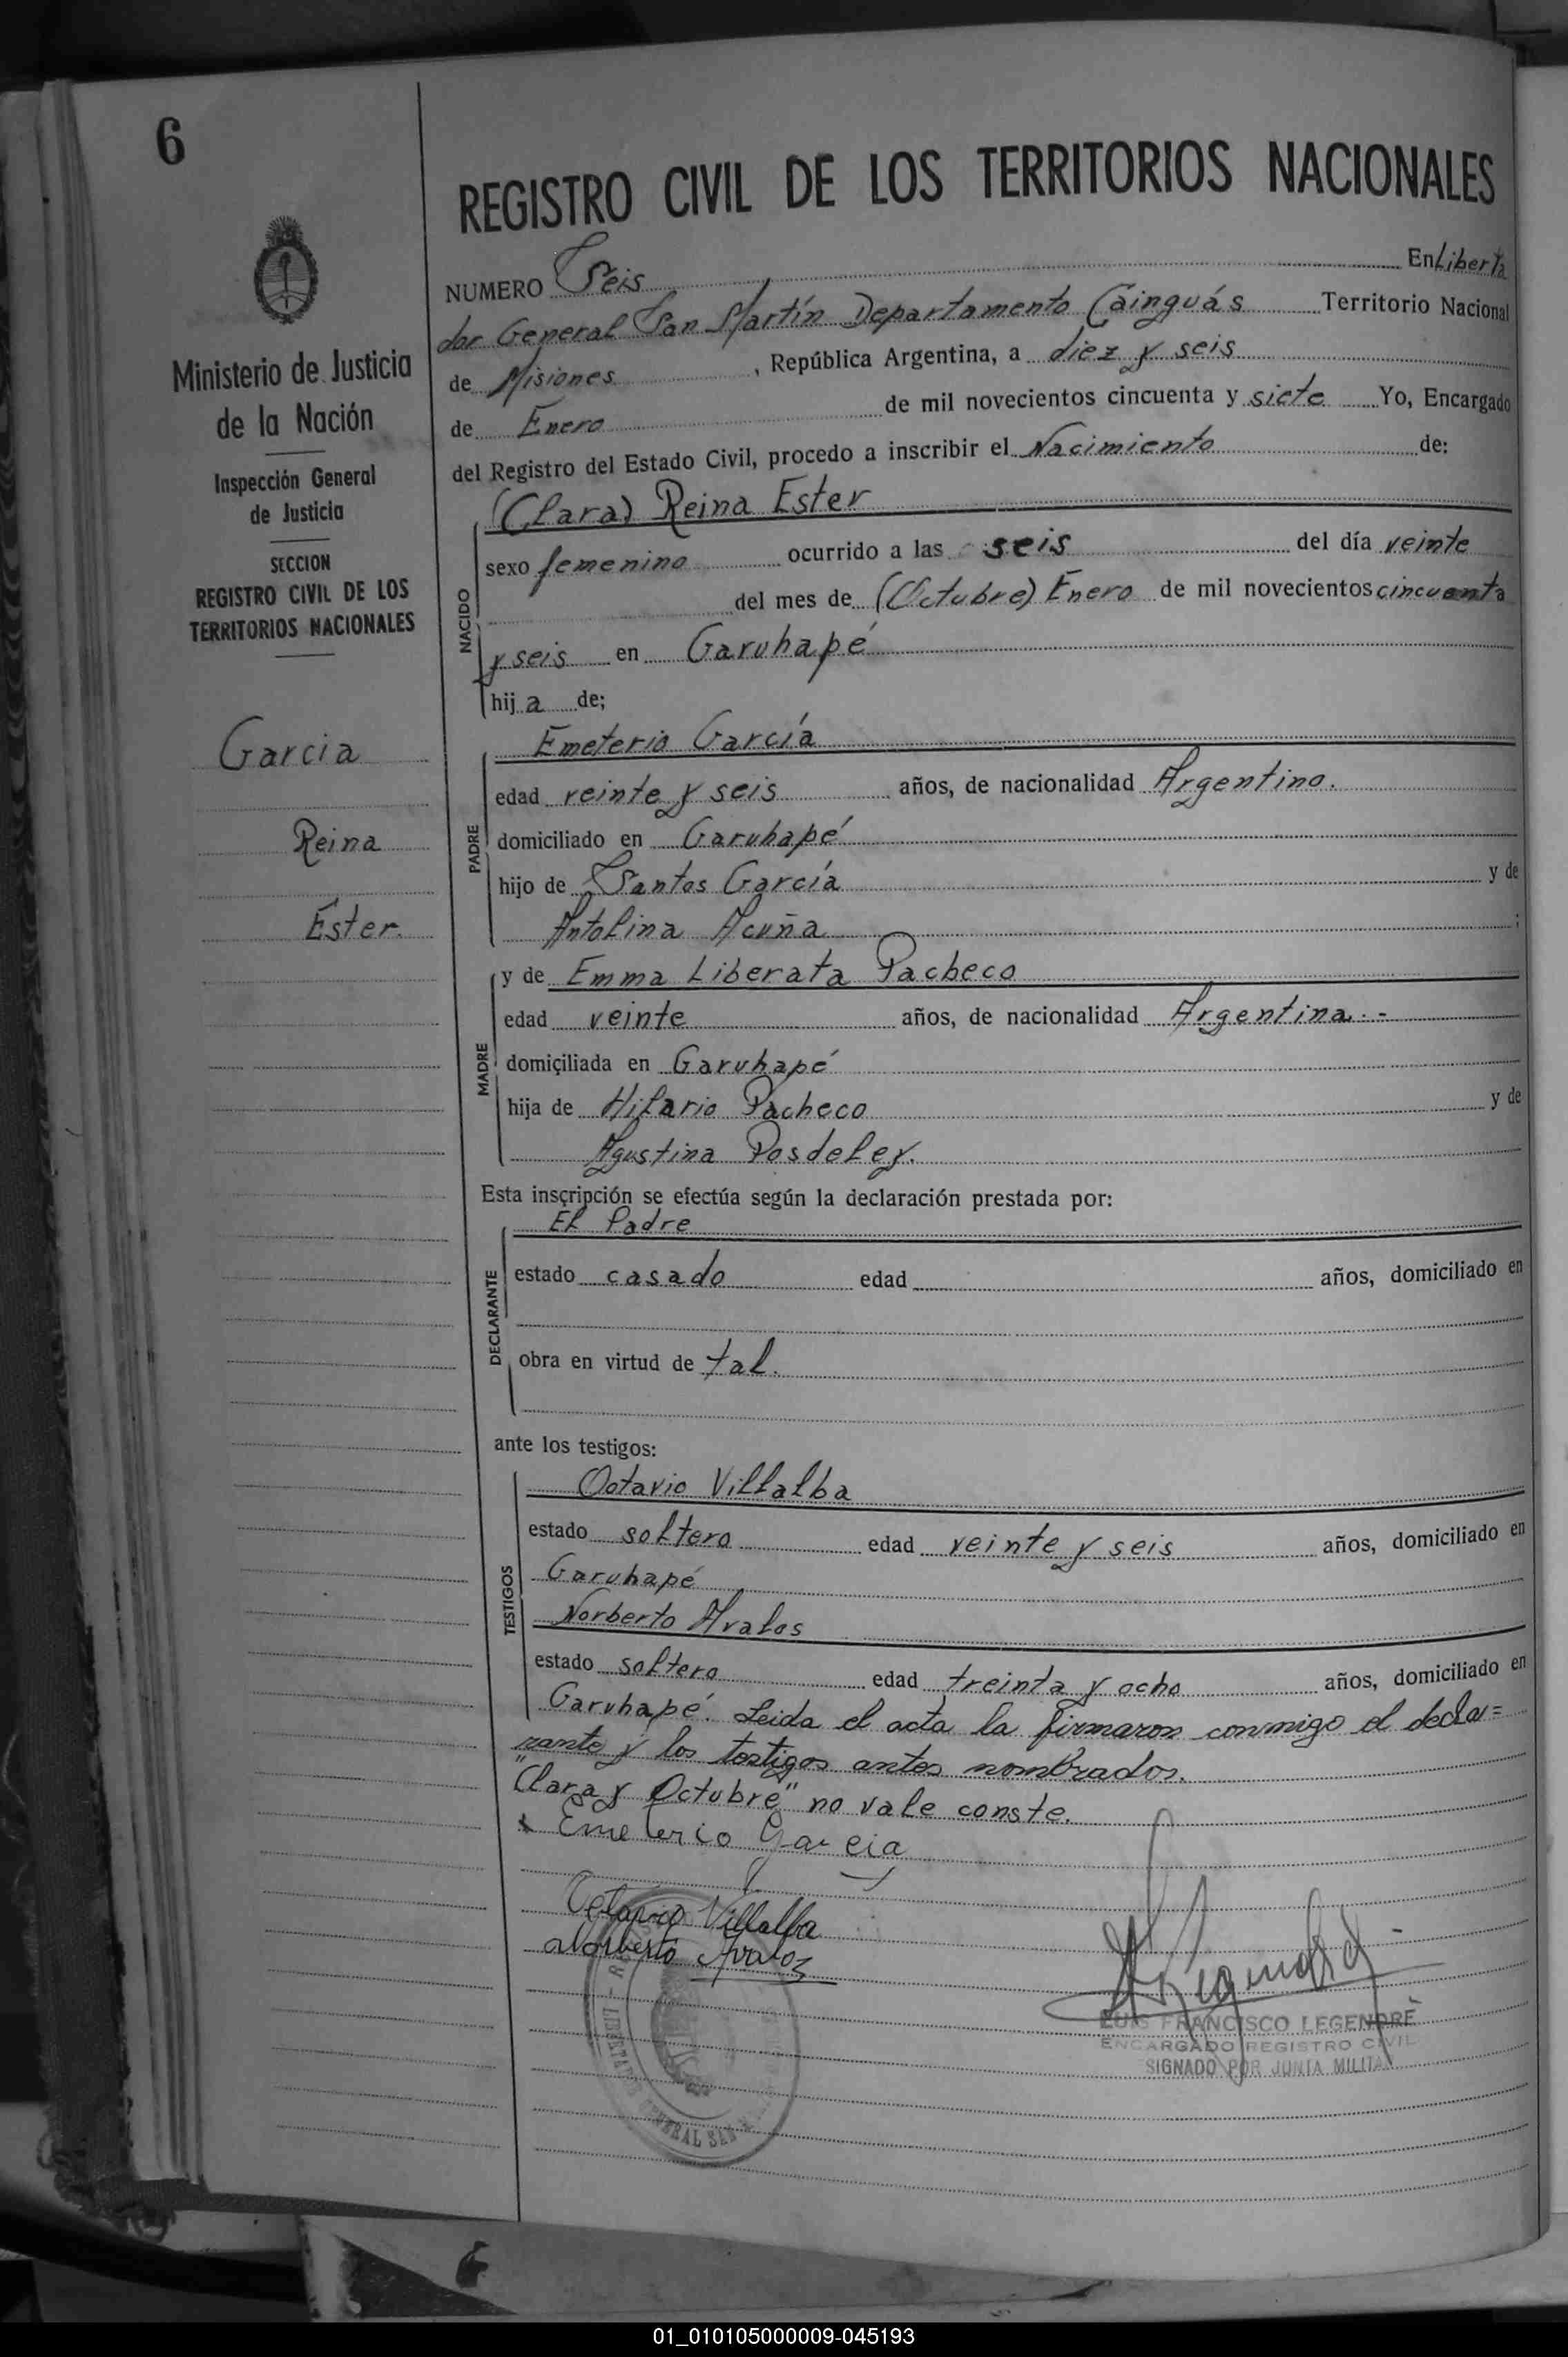 6
Ministerio de Justicia
de la Nación
Inspección General
de Justicia
SECCION
REGISTRO CIVIL DE LOS
TERRITORIOS NACIONALES
Garcia
Reina
Ester.
REGISTRO CIVIL DE LOS TERRITORIOS NACIONALES
NUMERO Seis En Liberta
dor General San Martín Departamento Cainguás Territorio Nacional
de Misiones, República Argentina, a diez y seis
de Enero de mil novecientos cincuenta y siete Yo, Encargado
del Registro del Estado Civil, procedo a inscribir el Nacimiento de:
NACIDO
(Clara) Reina Ester
sexo femenino ocurrido a las seis del día veinte
del mes de (Octubre) Enero de mil novecientos cincuenta
y seis en Garuhapé
hija de;
PADRE
Emeterio García
edad veinte y seis años, de nacionalidad Argentino.
domiciliado en Garuhapé
hijo de Santos García y de
Antolina Acuña;
MADRE
y de Emma Liberata Pacheco
edad veinte años, de nacionalidad Argentina.-
domiciliada en Garuhapé
hija de Hilario Pacheco y de
Agustina Posdeley.
Esta inscripción se efectúa según la declaración prestada por:
DECLARANTE
El Padre
estado casado edad años, domiciliado en
obra en virtud de tal.
ante los testigos:
TESTIGOS
Octavio Villalba
estado soltero edad veinte y seis años, domiciliado en
Garuhapé
Norberto Avalos
estado soltero edad treinta y ocho años, domiciliado en
Garuhapé. Leida el acta la firmaron conmigo el decla=
rante y los testigos antes nombrados.
"Clara y Octubre" no vale conste.
Emeterio Garcia
Octavio Villalba
Norberto Avalos
LUIS FRANCISCO LEGENDRE
ENCARGADO REGISTRO CIVIL
SIGNADO POR JUNTA MILITAR
LIBERTADOR GENERAL SAN
01_010105000009-045193